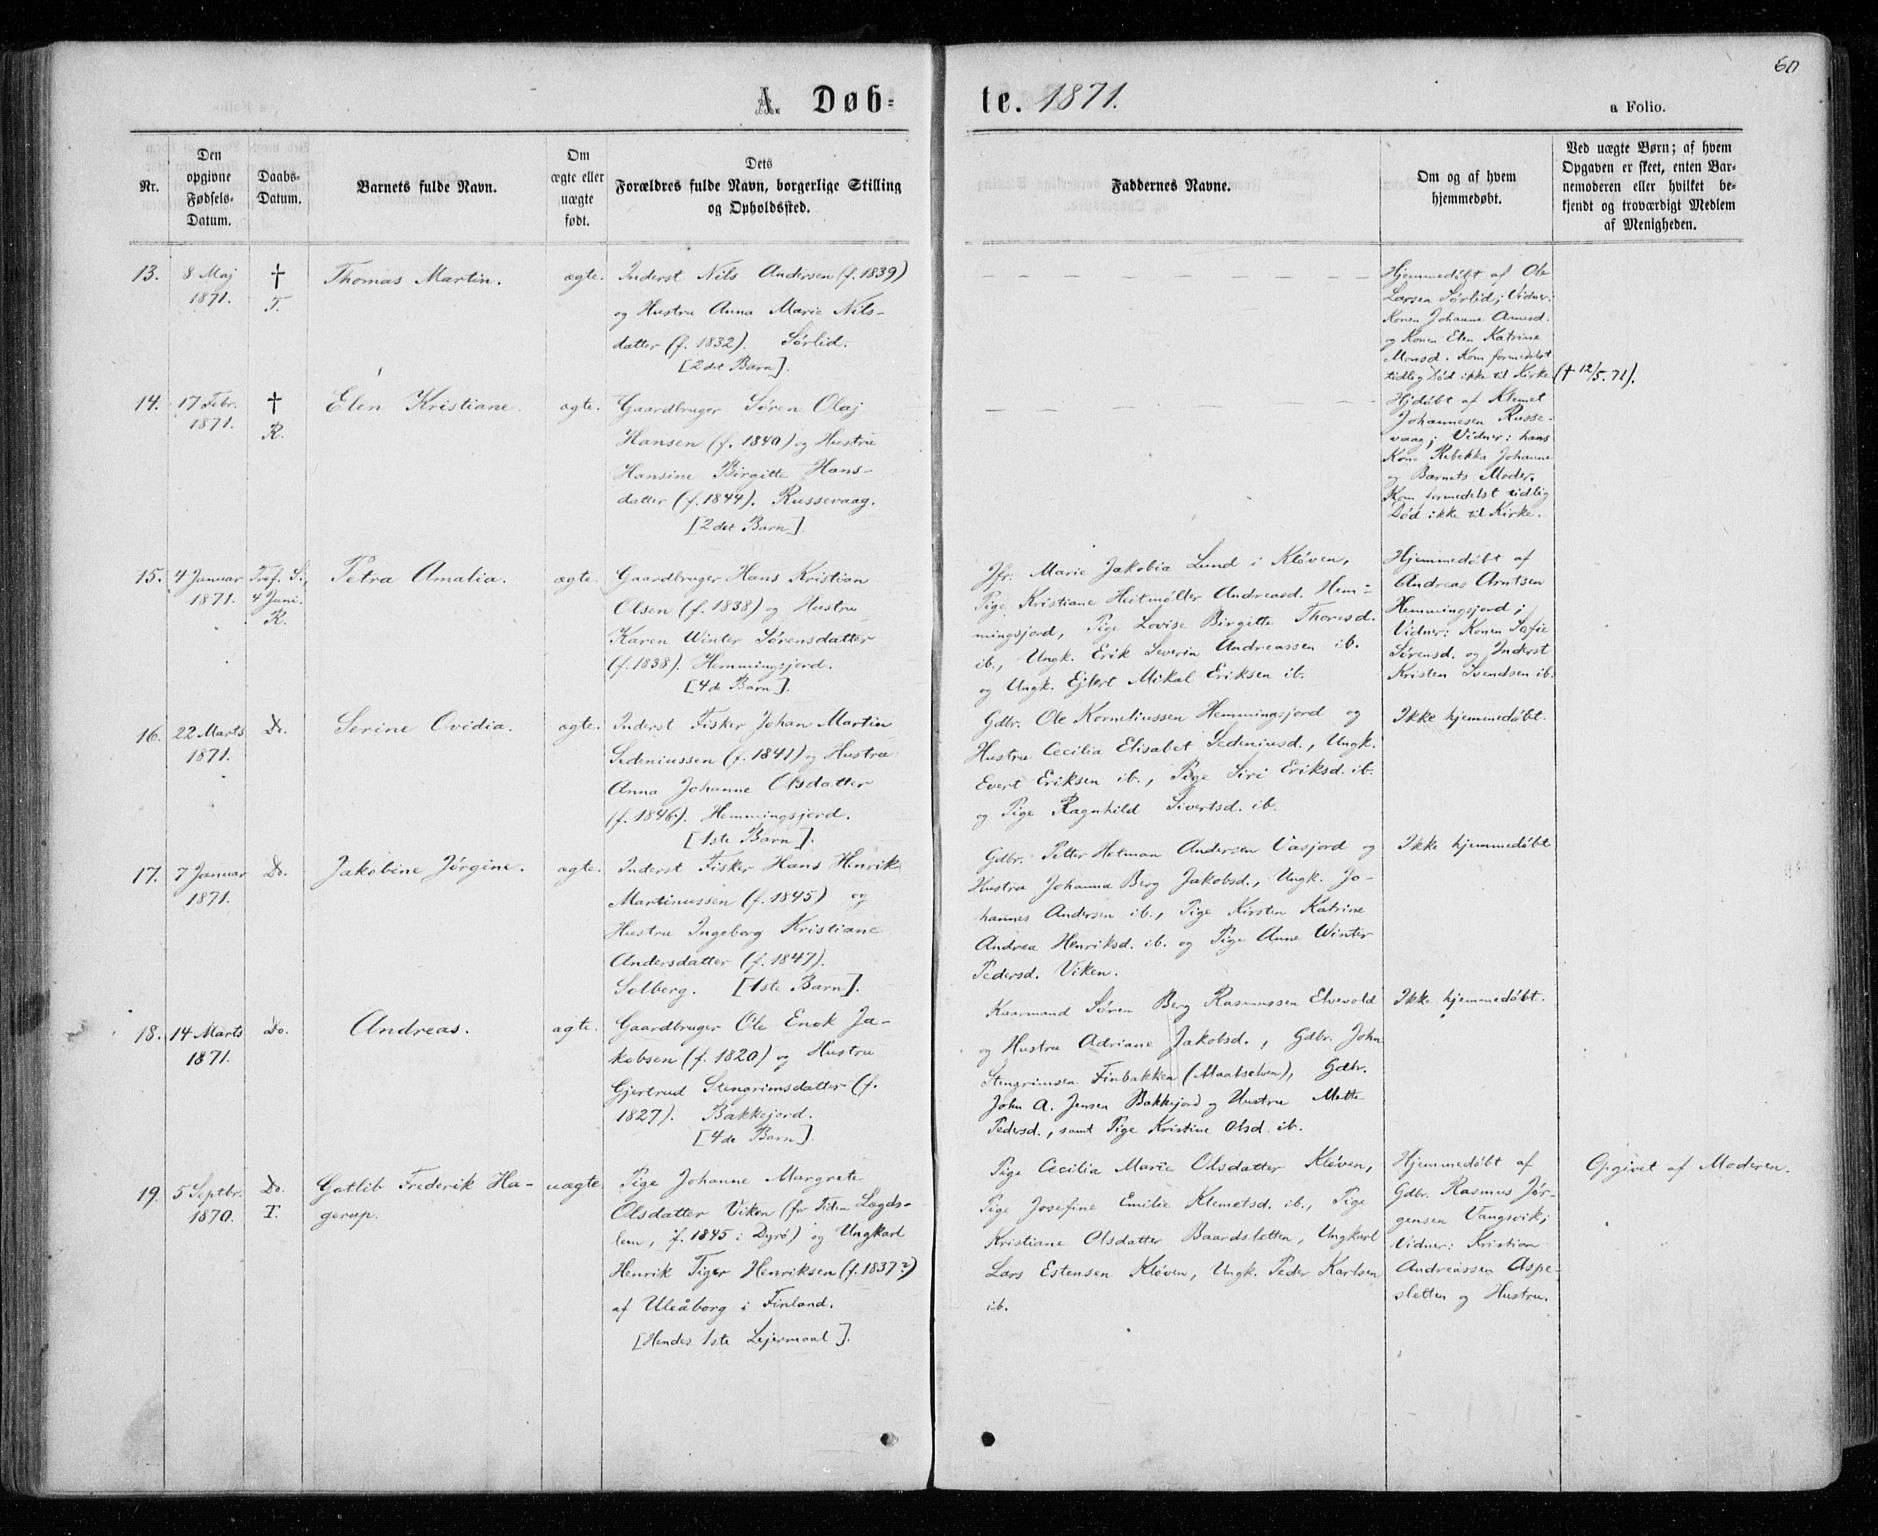 60
A. Døb=
te. 1871.
a Folio.
Nr.
Den
opgivne
Fødsels-
Datum.
Daabs-
Datum.
Barnets fulde Navn.
Om
ægte eller
uægte
født.
Dets
Forældres fulde Navn, borgerlige Stilling
og Opholdssted.
Faddernes Navne.
Om og af hvem
hjemmedøbt.
Ved uægte Børn; af hvem
Opgaven er skeet, enten Bar-
nemoderen eller hvilket be-
kjendt og troværdigt Medlem
af Menigheden.
13.
8 Maj
1871.
†
T.
Thomas Martin.
ægte.
Inderst Nils Andersen (f. 1839)
og Hustru Anna Marie Nils-
datter (f. 1832). Sørlid.
[2det Barn].
Hjemmedøbt af Ole
Larsen Sørlid; Vidner:
Konen Johanne Amosd.
og Konen Elen Katrine
Monsd. Kom formedelst
tidlig Død ikke til Kirke
(† 12/5. 71).
14.
17 Febr.
1871.
†
R.
Elen Kristiane.
ægte.
Gaardbruger Søren Olaj
Hansen (f. 1840) og Hustru
Hansine Birgitte Hans-
datter (f. 1844). Russevaag.
[2det Barn].
Hjdøbt af Klemet
Johannesen Russe-
vaag; Vidner: hans
Kone Rebekka Johanne
og Barnets Moder.
Kom formedelst tidlig
Død ikke til Kirke.
15.
4 Januar
1871.
Tref. S.,
4 Juni.
R.
Petra Amalia.
ægte.
Gaardbruger Hans Kristian
Olsen (f. 1838) og Hustru
Karen Winter Sørensdatter
(f. 1838). Hemmingsjord.
[4de Barn].
Jfr. Marie Jakobia Lund i Kløven,
Pige Kristiane Heitmøller Andreasd. Hem-
mingsjord, Pige Lovise Birgitte Thoresd.
ib., Ungk. Erik Severin Andreassen ib.
og Ungk. Ejlert Mikal Eriksen ib.
Hjemmedøbt af
Andreas Arntsen
Hemmingsjord;
Vidner: Konen Sofie
Sørensd. og Inderst
Kristen Svendsen ib.
16.
22 Marts
1871.
Do.
Serine Ovidia.
ægte.
Inderst Fisker Johan Martin
Sedeniussen (f. 1841) og Hustru
Anna Johanne Olsdatter
(f. 1846). Hemmingsjord.
[1ste Barn].
Gdbr. Ole Korneliussen Hemmingsjord og
Hustru Cecilia Elisabet Sedeniusd., Ungk.
Evert Eriksen ib., Pige Siri Eriksd. ib.
og Pige Ragnhild Sivertsd. ib.
Ikke hjemmedøbt.
17.
7 Januar
1871.
Do.
Jakobine Jørgine.
ægte.
Inderst Fisker Hans Henrik
Martinussen (f. 1845) og
Hustru Ingeborg Kristiane
Andersdatter (f. 1847).
Solberg. [1ste Barn].
Gdbr. Petter Hetman Andersen Vasjord og
Hustru Johanna Berg Jakobsd., Ungk. Jo-
hannes Andersen ib., Pige Kirsten Katrine
Andrea Henriksd. ib. og Pige Anne Winter
Pedersd. Viken.
Ikke hjemmedøbt
18.
14 Marts
1871.
Do.
Andreas.
ægte.
Gaardbruger Ole Enok Ja-
kobsen (f. 1820) og Hustru
Gjertrud Stengrimsdatter (f.
1827). Bakkejord.
[4de Barn].
Kaarmand Søren Berg Rasmussen Elvevold
og Hustru Adriane Jakobsd., Gdbr. John
Stengrimsen Finbakken (Maalselven), Gdbr.
John A. Jensen Bakkejord og Hustru Mette
Pedersd., samt Pige Kristine Olsd. ib.
Ikke hjemmedøbt.
19.
5 Septbr.
1870.
Do.
T.
Gotlib Frederik Ha-
gerup.
uægte
Pige Johanne Margrete
Olsdatter Viken (for Tiden Lægds-
lem, f. 1845 i Dyrø) og Ungkarl
Henrik Tiger Henriksen (f. 1837?)
af Uleåborg i Finland.
[Hendes 1ste Lejermaal].
Pige Cecilia Marie Olsdatter Kløven,
Pige Josefine Emilie Klemetsd. ib., Pige
Kristiane Olsdatter Baardsletten, Ungkarl
Lars Estensen Kløven, Ungk. Peder Karlsen
ib.
Hjemmedøbt af
Gdbr. Rasmus Jør-
gensen Vangsvik;
Vidner: Kristian
Andreassen Aspe-
sletten og Hustru.
Opgivet af Moderen.